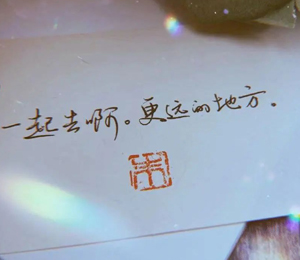 一起去啊。更远的地方。